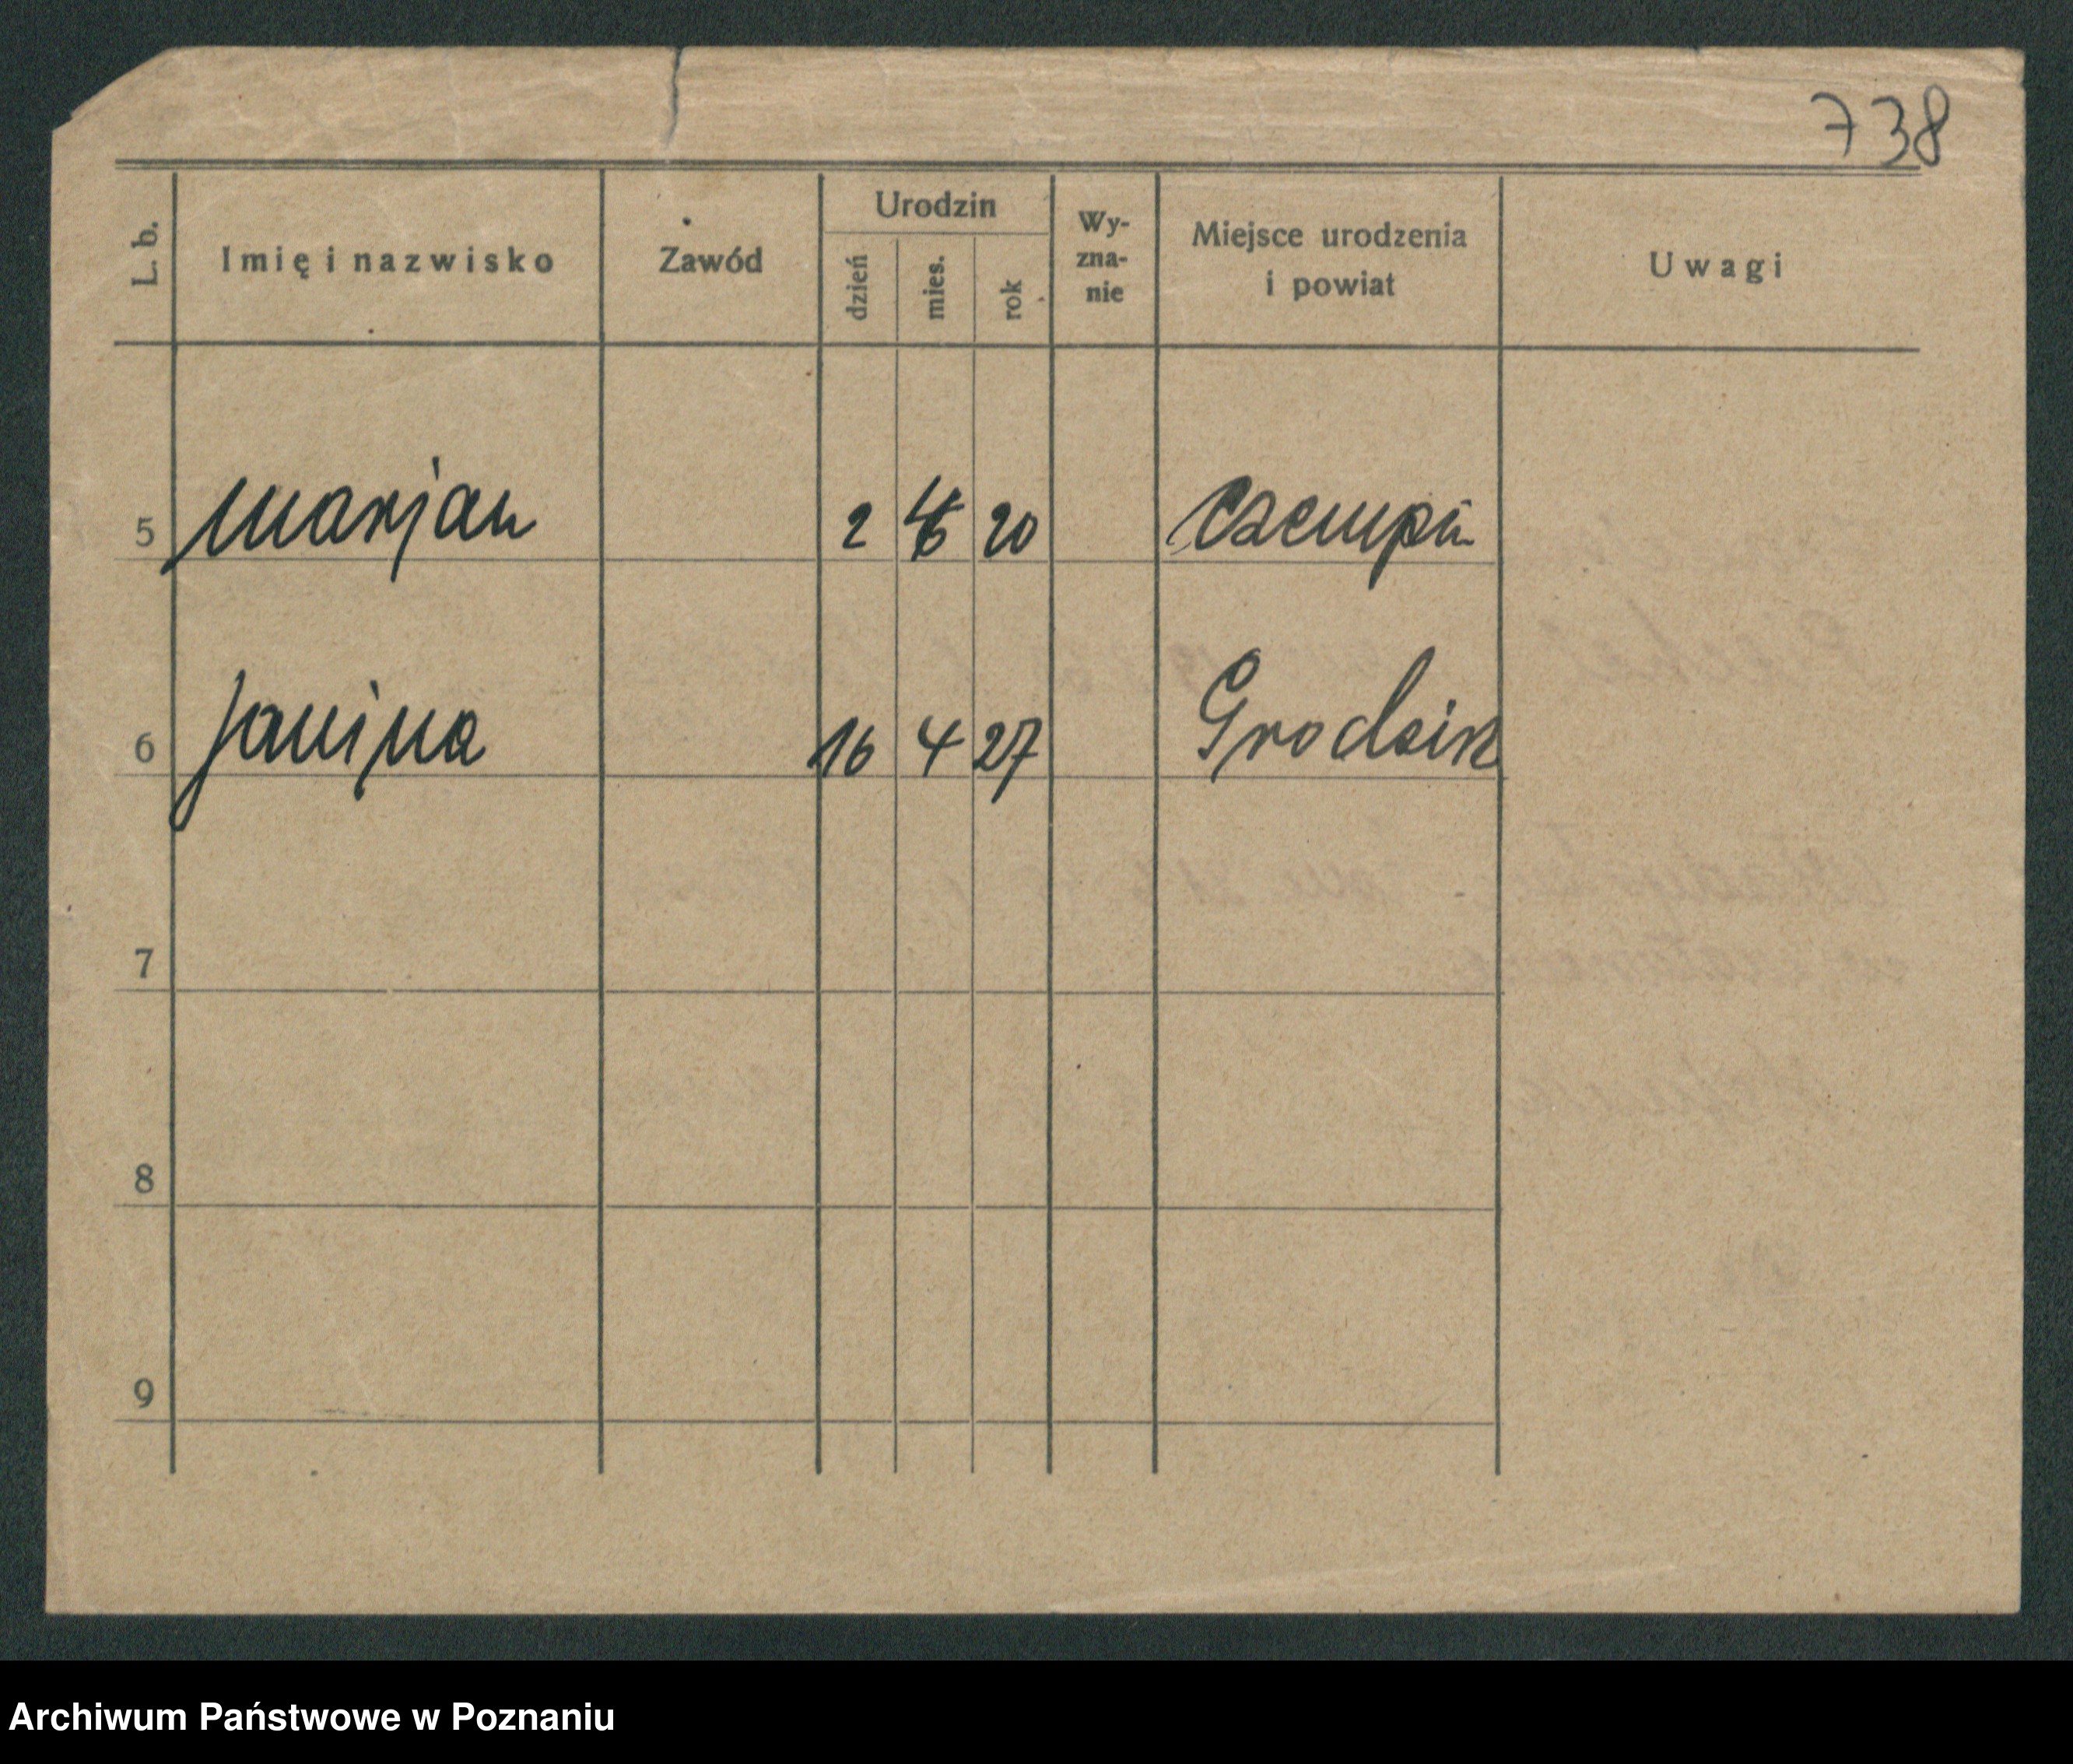 738
L. b.
Imię i nazwisko
Zawód
Urodzin
dzień
mies.
rok
Wy-
zna-
nie
Miejsce urodzenia
i powiat
Uwagi
5 Marjan 2 20 Czempiń
6 Janina 16 4 27 Grodzisk
7
8
9
Archiwum Państwowe w Poznaniu